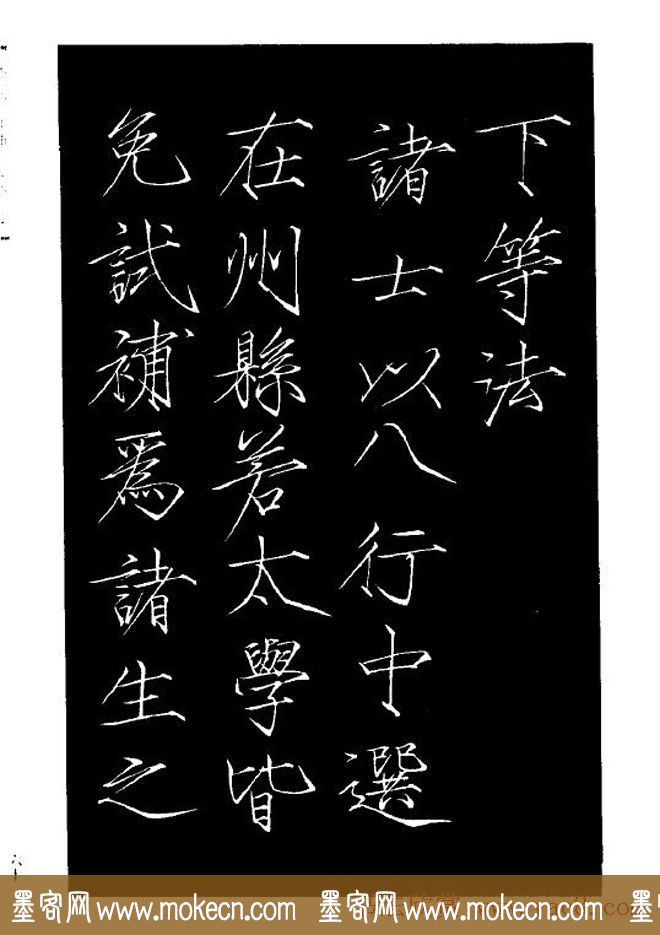 下等法
諸士以八行中選
在州縣若太學皆
免試補爲諸生之
六十
墨客网 www.mokecn.com 墨客网 www.mokecn.com 墨